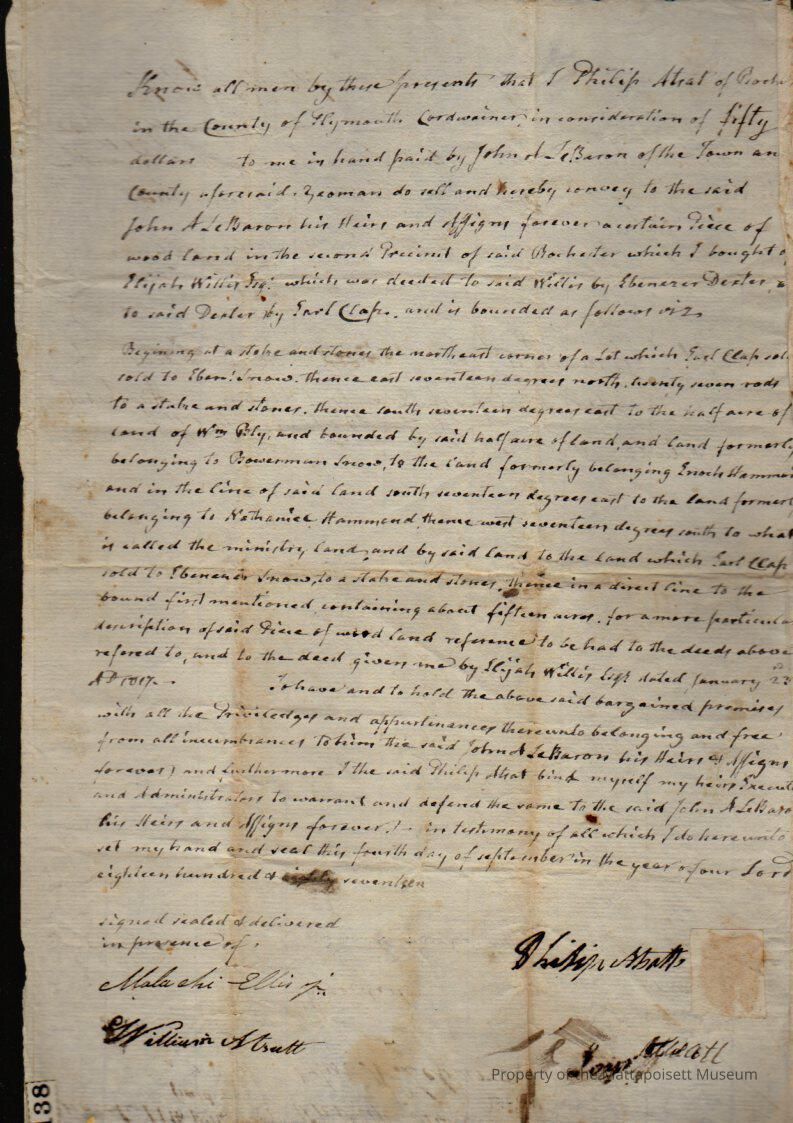 Know all men by these presents that I Philip Atsat of Roche
in the County of Plymouth Cordwainer, in consideration of fifty
dollars to me in hand paid by John A LeBaron of the Town an
County aforesaid, Yeoman do sell and hereby convey to the said
John A LeBaron his Heirs and Assigns forever a certain Piece of
wood land in the second Precinct of said Rochester which I bought o
Elijah Willis Esqr. which was deeded to said Willis by Ebenezer Dexter, &
to said Dexter by Earl Clap. and is bounded as follows viz.
Begining at a stake and stones the northeast corner of a Lot which Earl Clap sol
sold to Ebenr. Snow. thence east seventeen degrees north, twenty seven rods
to a stake and stones, thence south seventeen degrees east to the half acre of
land of Wm Bly, and bounded by said half acre of land, and land formerly
belonging to Bowerman Snow, to the land formerly belonging Enoch Hammon
and in the line of said land south seventeen degrees east to the land formerl
belonging to Nathaniel Hammond, thence west seventeen degrees south to what
is called the ministry land, and by said land to the land which Earl Clap
sold to Ebenezer Snow, to a stake and stones, thence in a direct line to the
bound first mentioned, containing about fifteen acres, for a more particula
description of said Piece of wood land reference to be had to the deeds above
refered to, and to the deed given me by Elijah Willis Esqr. dated January 23
AD 1817.
To have and to hold the above said bargained premises
with all the Priviledges and appurtinances thereunto belonging and free
from all incumbrances to him the said John A LeBaron his Heirs & Assigns
forever, and furthermore I the said Philip Atsat bind myself my heirs Execut
and Administrators to warrant and defend the same to the said John A LeBaro
his Heirs and Assigns forever. in testimony of all which I do hereunto
set my hand and seal this fourth day of september in the year of our Lord
eighteen hundred & seventeen
signed sealed & delivered
in presence of,
Malachi Ellis jr.
William Atsatt
Philip Atsatt
Atsatt
Property of the Mattapoisett Museum
38